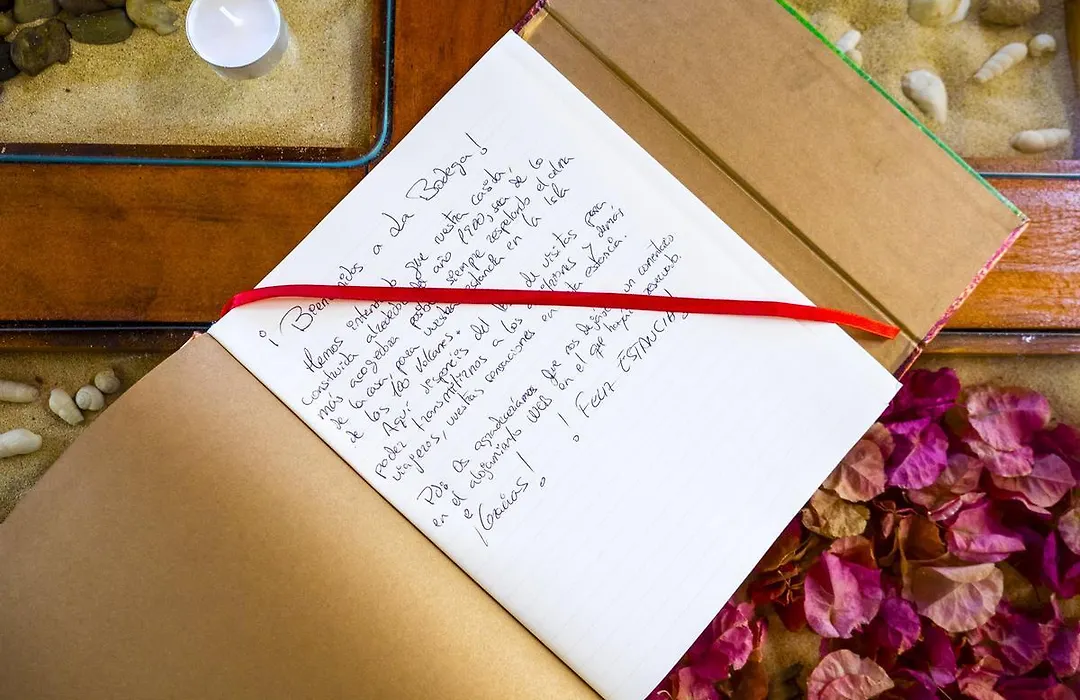 ¡Bienvenidos a La Bodega!
Hemos intentado que nuestra casita,
construida alrededor del año 1900, sea de lo
más acogedora posible, siempre respetando el alma
de la casa, para vuestra estancia en la Isla
de los 100 volcanes.
Aquí disponéis del libro de visitas para
poder transmitirnos a los anfitriones y demás
viajeros, vuestras sensaciones en esta estancia.
Pd: Os agradeceríamos que nos dejárais un comentario
en el alojamiento web en el que hayáis reservado.
¡Gracias! ¡FELIZ ESTANCIA!